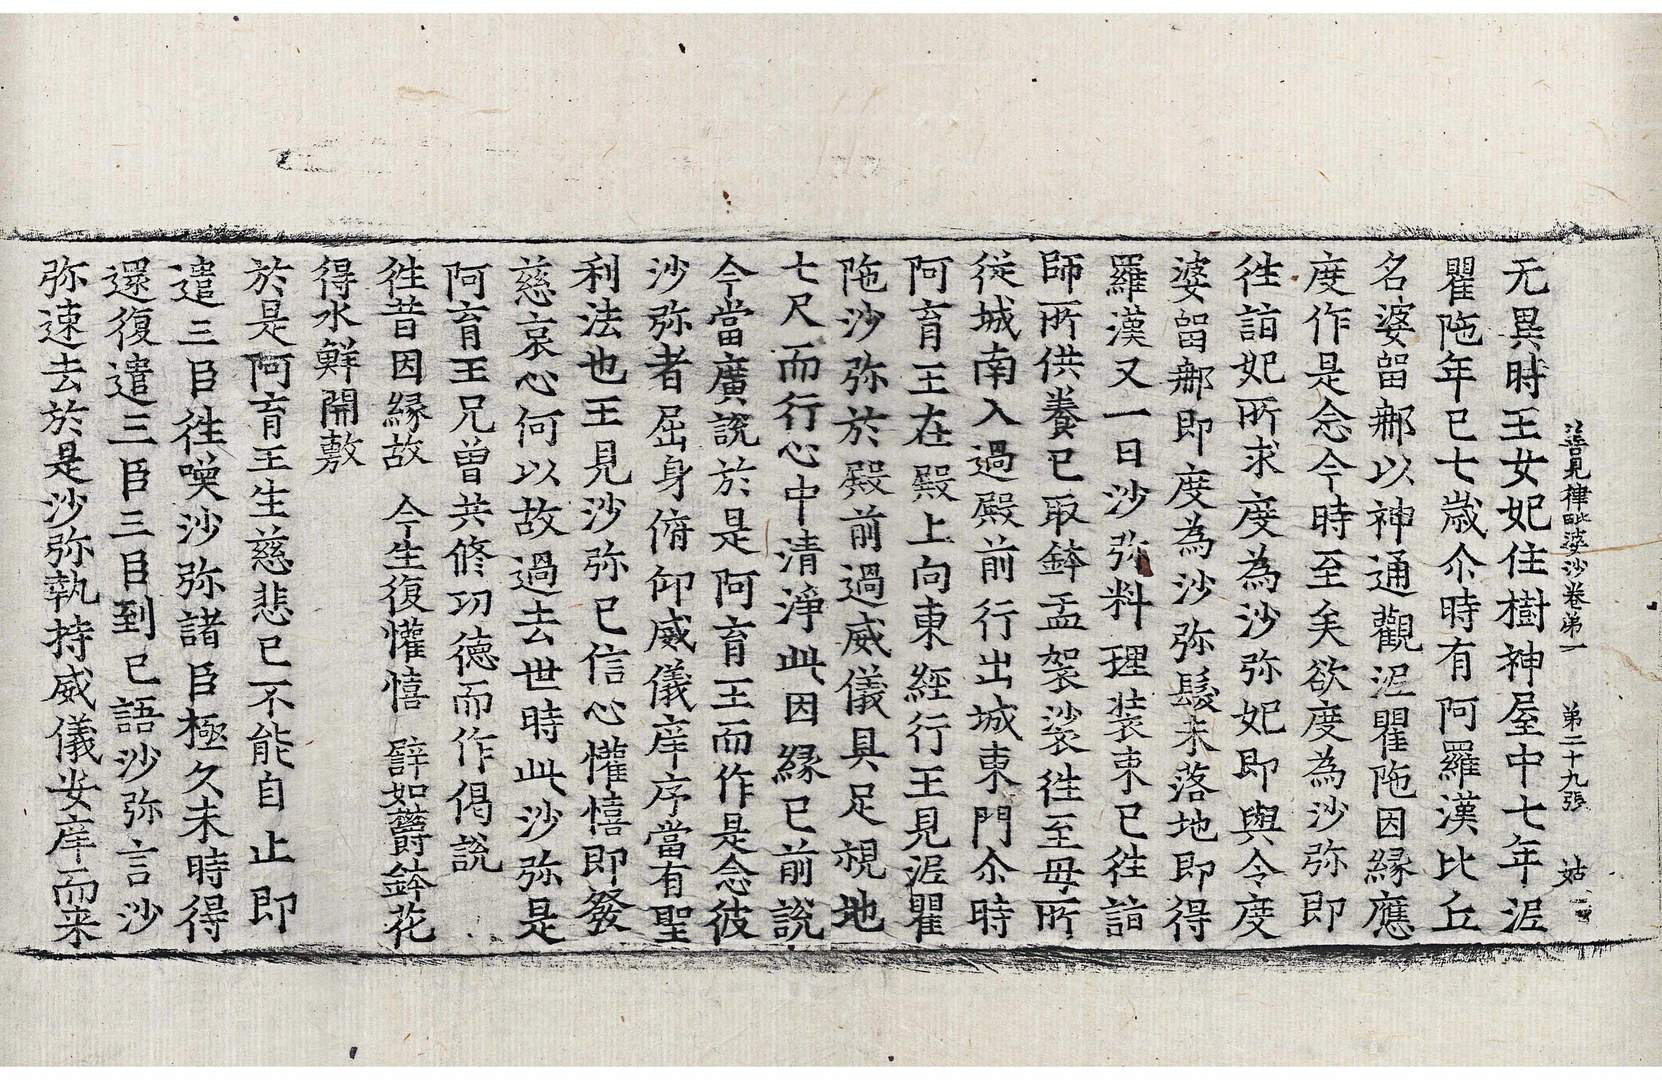 善見律毗婆沙卷第一 第二十九張 姑
无異時王女妃住樹神屋中七年涅
瞿陁年已七歲尒時有阿羅漢比丘
名婆留䣝以神通觀涅瞿陁因緣應
度作是念今時至矣欲度為沙弥即
徃詣妃所求度為沙弥妃即與令度
婆留䣝即度為沙弥髮未落地即得
羅漢又一日沙弥料理裝束已徃詣
師所供養已取鉢盂袈裟徃至母所
従城南入過殿前行出城東門尒時
阿育王在殿上向東經行王見涅瞿
陁沙弥於殿前過威儀具足視地
七尺而行心中清淨此因緣已前說
今當廣說於是阿育王而作是念彼
沙弥者屈身俯仰威儀庠序當有聖
利法也王見沙弥已信心懽憘即發
慈哀心何以故過去世時此沙弥是
阿育王兄曾共修功德而作偈說
徃昔因緣故 今生復懽憘 譬如欝鉢花
得水鮮開敷
於是阿育王生慈悲已不能自止即
遣三臣徃喚沙弥諸臣極久未時得
還復遣三臣三臣到已語沙弥言沙
弥速去於是沙弥執持威儀安庠而来